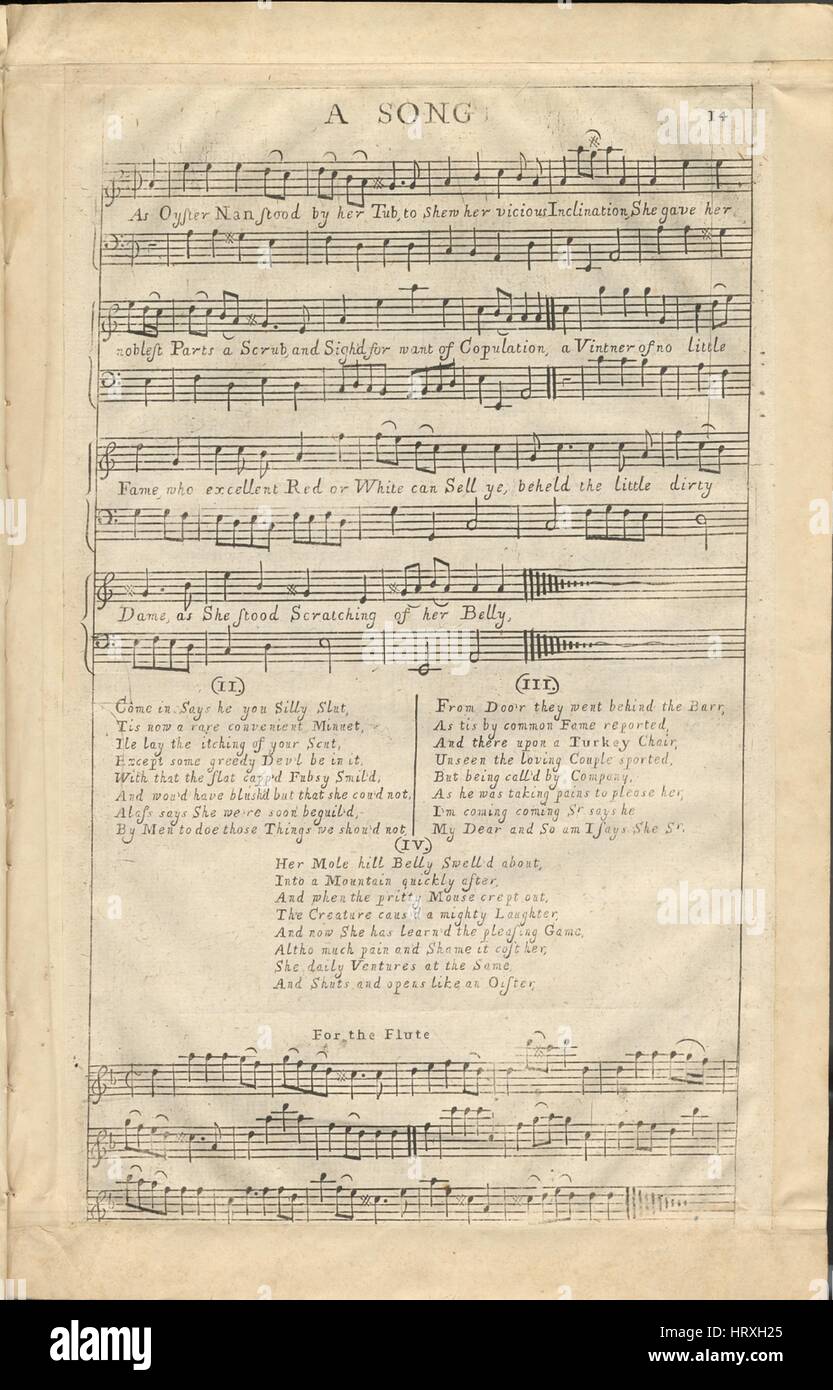 A SONG
14
As Oyster Nan ſtood by her Tub, to Shew her vicious Inclination, She gave her
nobleſt Parts a Scrub, and Sigh'd for want of Copulation, a Vintner of no little
Fame, who excellent Red or White can Sell ye, beheld the little dirty
Dame, as She ſtood Scratching of her Belly,
(II.)
Come in Says he you Silly Slut,
Tis now a rare convenient Minuet,
Ile lay the itching of your Scut,
Except some greedy Dev'l be in it,
With that the flat capp'd Fubsy Smil'd,
And wou'd have blush'd but that she cou'd not,
Alaſs says She we're soon beguil'd,
By Men to doe those Things we shou'd not,
(III.)
From Doo'r they went behind the Barr,
As tis by common Fame reported,
And there upon a Turkey Chair,
Unseen the loving Couple sported,
But being call'd by Company,
As he was taking pains to please her,
I'm coming coming Sr. says he
My Dear and So am I ſays She Sr.
(IV.)
Her Mole hill Belly Swell'd about,
Into a Mountain quickly after,
And when the pritty Mouse crept out,
The Creature caus'd a mighty Laughter,
And now She has learn'd the pleaſing Game,
Altho much pain and Shame it coſt her,
She daily Ventures at the Same,
And Shuts and opens like an Oiſter,
For the Flute
alamy
alamy
Image ID: HRXH25
www.alamy.com